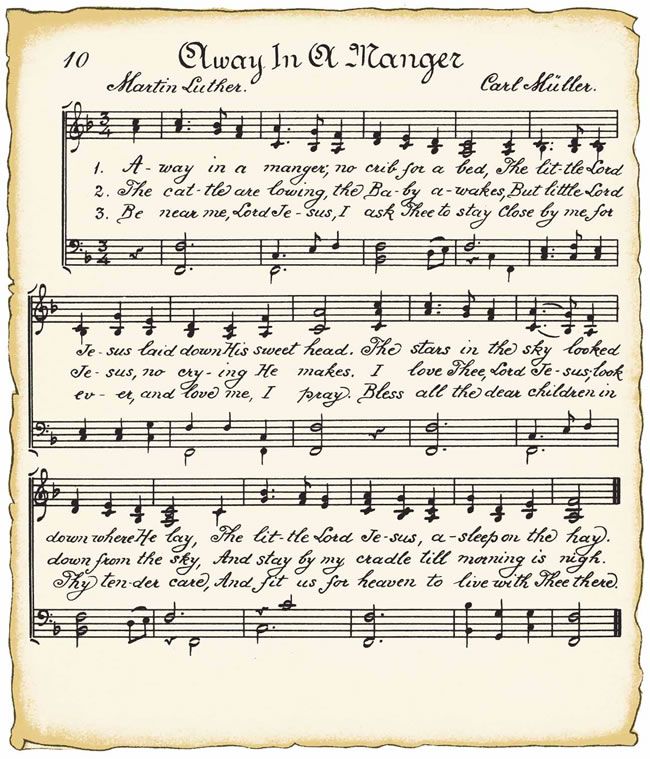 10 Away In A Manger
Martin Luther. Carl Müller.
1. A-way in a manger, no crib for a bed, The lit-tle Lord
2. The cat-tle are lowing, the Ba-by a-wakes, But little Lord
3. Be near me, Lord Je-sus, I ask Thee to stay Close by me, for
Je-sus laid down His sweet head. The stars in the sky looked
Je-sus, no cry-ing He makes. I love Thee, Lord Je-sus, look
ev-er, and love me, I pray. Bless all the dear children in
down where He lay, The lit-tle Lord Je-sus, a-sleep on the hay.
down from the sky, And stay by my cradle till morning is nigh.
Thy ten-der care, And fit us for heaven to live with Thee there.